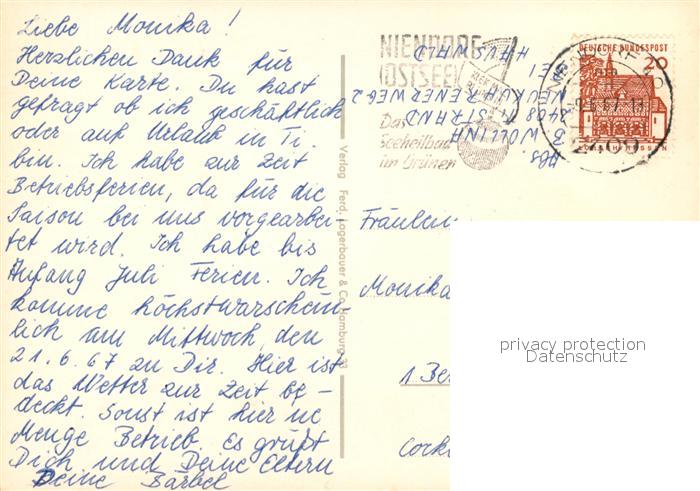 Liebe Monika!
Herzlichen Dank für
Deine Karte. Du hast
gefragt ob ich geschäftlich
oder auf Urlaub in Ti.
bin. Ich habe zur Zeit
Betriebsferien, da für die
Saison bei uns vorgearbei-
tet wird. Ich habe bis
Anfang Juli Ferien. Ich
komme höchstwarschein-
lich am Mittwoch, den
21.6.67 zu Dir. Hier ist
das Wetter zur Zeit be-
deckt. Sonst ist hier ne
Menge Betrieb. Es grüßt
Dich und Deine Eltern
Deine Bärbel
Verlag Ferd. Lagerbauer & Co. Hamburg 33
NIENDORF
OSTSEE
Das
Seeheilbad
im Grünen
DEUTSCHE BUNDESPOST
20
Abs.
B. WOLLINA
2408 T. STRAND
Fräulein
Monika
1 Ber
privacy protection
Datenschutz